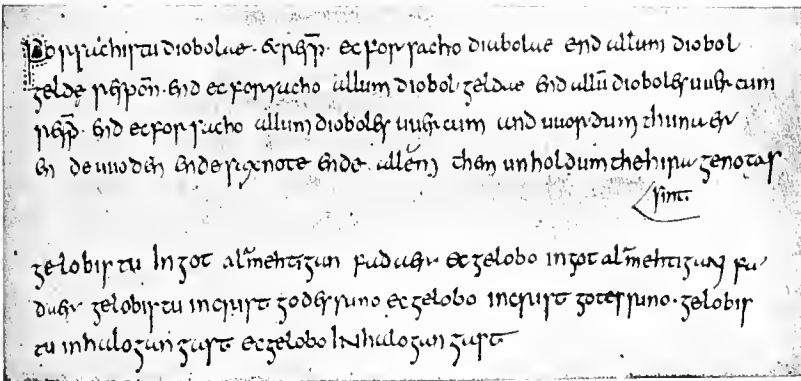 Forsachistu diobolae. & resp̄. ec forsacho diabolae end allum diobol
gelde respōn. end ec forsacho allum diobol geldae end allū dioboles uuercum
resp̄. end ec forsacho allum dioboles uuercum and uuordum thunaer
en de uuoden ende saxnote ende allem them unholdum the hira genotas
sint.
gelobistu in got alamehtigan fadaer ec gelobo in got alamehtigan fa
daer gelobistu in crist godes suno ec gelobo in crist gotes suno. gelobis
tu in halogan gast ec gelobo in halogan gast